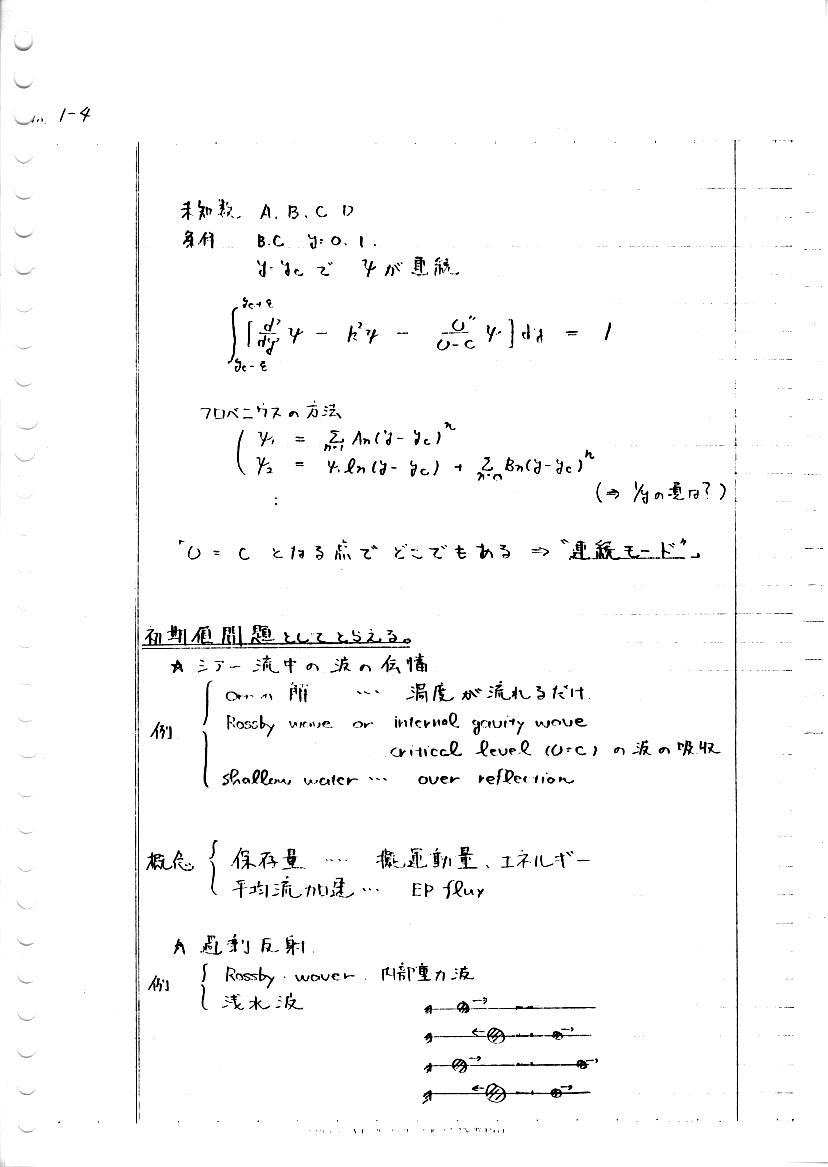 No. 1-4
未知数. A, B, C D
条件 B.C y=0, 1.
y=yc で ψ が連続.
∫_{yc-ε}^{yc+ε} [ d²/dy² ψ - k²ψ - U''/(U-C) ψ ] dy = 1
フロベニウスの方法
ψ₁ = Σ_{n=1} An(y-yc)^n
ψ₂ = ψ₁ ln(y-yc) + Σ_{n=0} Bn(y-yc)^n
(⇒ 1/yの意は?)
:
「U = C となる点で どこでもある ⇒ "連続モード"」
初期値問題としてとらえる。
☆ シアー流中の波の伝播
例 { Orrの解 … 渦度が流れるだけ.
Rossby wave or internal gavity wave
critical level (U=C) の波の吸収
shallow water … over reflection
概念 { 保存量 …. 擬運動量、エネルギー
平均流加速 … EP flux
☆ 過剰反射
例 { Rossby. waver. 内部重力波
浅水波